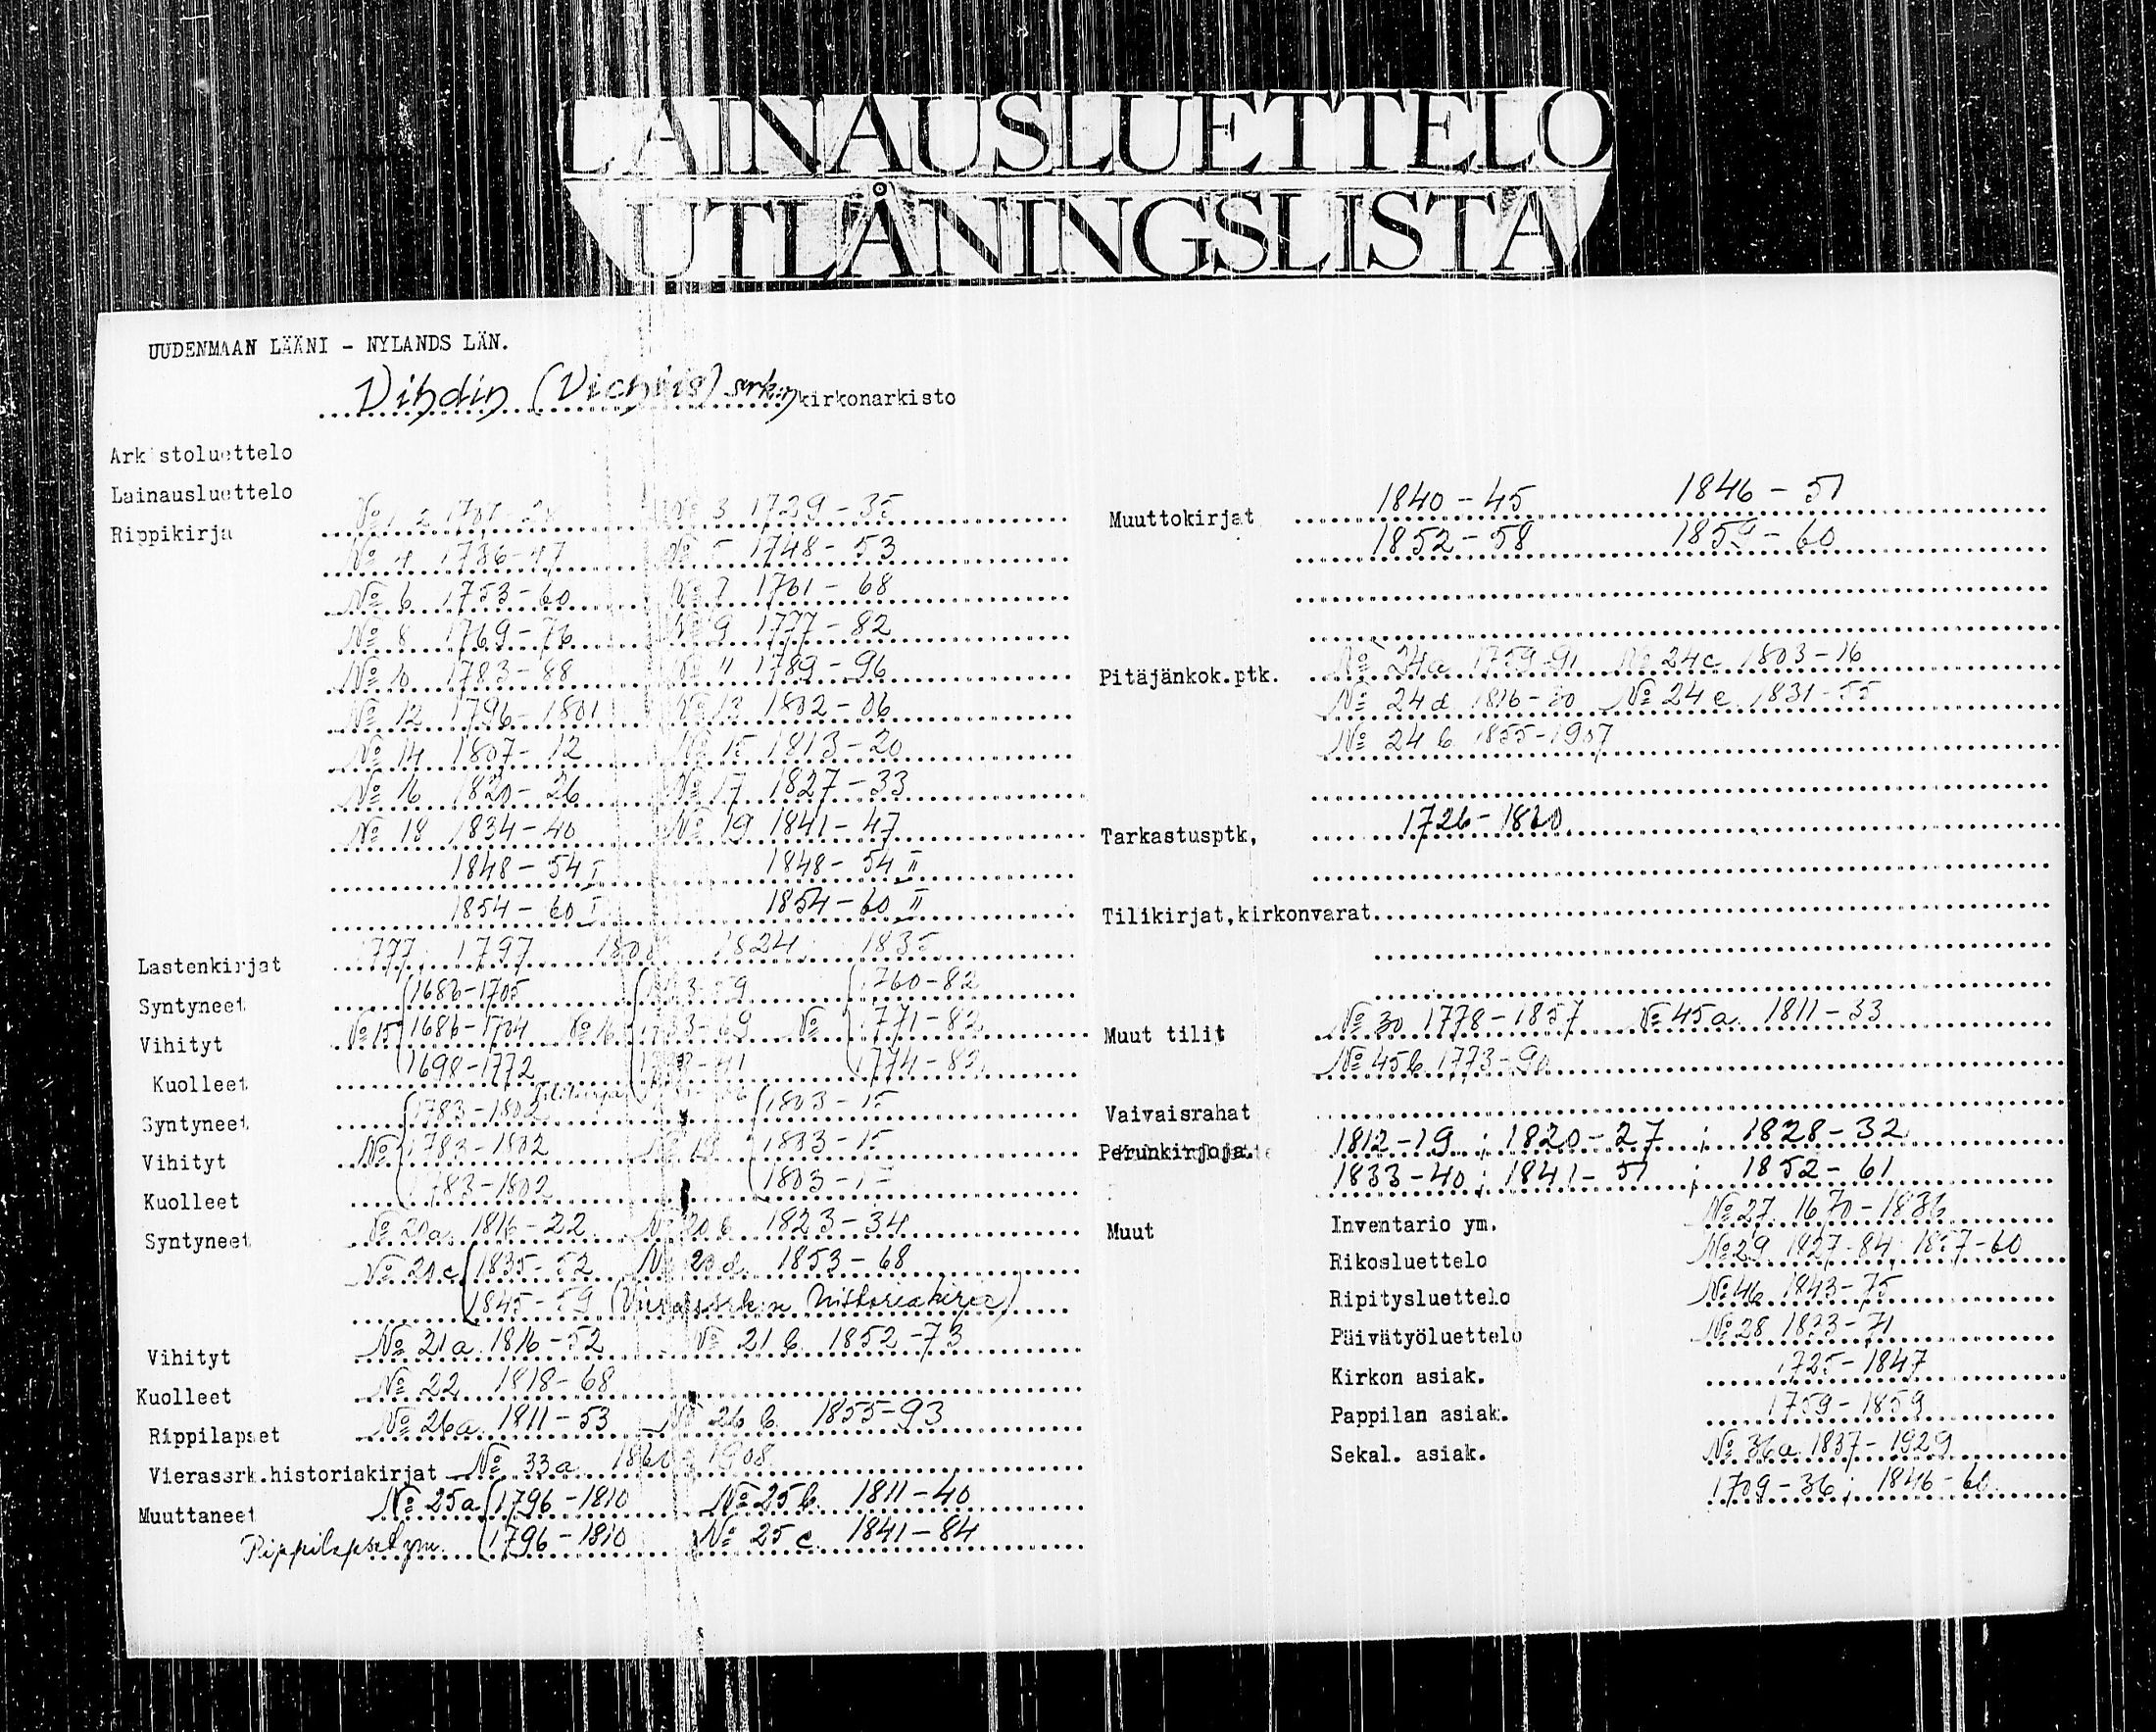 LAINAUSLUETTELO
UTLÅNINGSLISTA
UUDENMAAN LÄÄNI - NYLANDS LÄN.
Vihdin (Vichtis) srk:n kirkonarkisto
Arkistoluettelo
Lainausluettelo
Rippikirja
№ 3 1729-35
№ 4 1736-47 № 5 1748-53
№ 6 1753-60 № 7 1761-68
№ 8 1769-76 № 9 1777-82
№ 10 1783-88 № 11 1789-96
№ 12 1796-1801 № 13 1802-06
№ 14 1807-12 № 15 1813-20
№ 16 1820-26 № 17 1827-33
№ 18 1834-40 № 19 1841-47
1848-54 I 1848-54 II
1854-60 I 1854-60 II
Lastenkirjat 1777 1797 1824 1835
Syntyneet 1686-1705 1760-82
Vihityt № 15 1686-1704 № 16 № 1771-82
Kuolleet 1698-1772 1774-82
Syntyneet 1783-1802 1803-15
Vihityt № 1783-1802 1803-15
Kuolleet 1783-1802
Syntyneet № 20a 1816-22 № 20b 1823-34
№ 20c 1835-52 № 20d 1853-68
1845-59 (Vierassrk:n historiakirja)
Vihityt № 21a 1816-52 № 21b 1852-73
Kuolleet № 22 1818-68
Rippilapset № 26a 1811-53 № 26b 1855-93
Vierassrk.historiakirjat № 33a 1908
Muuttaneet № 25a 1796-1810 № 25b 1811-40
Rippilapset ym. 1796-1810 № 25c 1841-84
Muuttokirjat 1840-45 1846-51
1852-58 1859-60
Pitäjänkok.ptk. № 24a 1759-91 № 24c 1803-16
№ 24d 1816-30 № 24e 1831-55
№ 24b 1855-1907
Tarkastusptk. 1726-1860
Tilikirjat,kirkonvarat
Muut tilit № 30 1778-1857 № 45a 1811-33
№ 45b 1773-90
Vaivaisrahat
Perunkirjoja 1812-19 ; 1820-27 ; 1828-32
1833-40 ; 1841-51 ; 1852-61
Muut Inventario ym. № 27 1670-1836
Rikosluettelo № 29 1827-84 1857-60
Ripitysluettelo № 46 1843-75
Päivätyöluettelo № 28 1823-71
Kirkon asiak. 1725-1847
Pappilan asiak. 1759-1859
Sekal. asiak. № 36a 1837-1929
1709-36 ; 1846-60